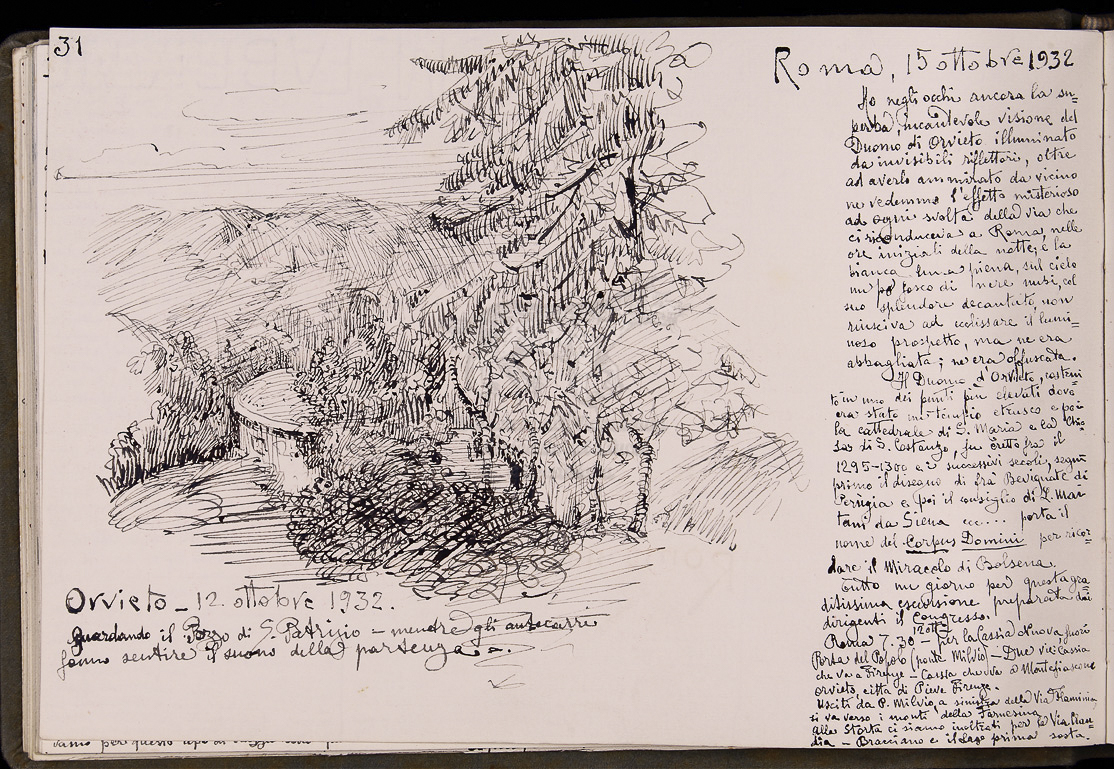 31
Orvieto - 12. ottobre 1932.
guardando il Pozzo di S. Patrizio - mentre gli autocarri
fanno sentire il suono della partenza -.
Roma, 15 ottobre 1932
Ho negli occhi ancora la su=
perba, incantevole visione del
Duomo di Orvieto illuminato
da invisibili riflettori, oltre
ad averlo ammirato da vicino
ne vedemmo l'effetto misterioso
ad ogni svolta della via che
ci riconduceva a Roma, nelle
ore iniziali della notte; e la
bianca luna piena, sul cielo
un po' fosco di nere nubi, col
suo splendore decantato, non
riusciva ad eclissare il lumi=
noso prospetto, ma ne era
abbagliata; ne era offuscata.
Il Duomo d'Orvieto, costrui
to in uno dei punti più elevati dove
era stato un tempio etrusco e poi
la cattedrale di S. Maria e la Chie
sa di S. Costanzo, fu eretto fra il
1295-1300 e i successivi secoli, seguì
primo il disegno di frà Bevignate di
Perugia e poi il consiglio di L. Mai
tani da Siena ecc... porta il
nome del Corpus Domini per ricor=
dare il Miracolo di Bolsena.
Tutto un giorno per questa gra
ditissima escursione preparata dai
dirigenti il Congresso.
12 ott.
Roma 7.30 - per la Cassia Nuova, fuori
Porta del Popolo (ponte Milvio) - Due vie: Cassia
che va a Firenze - Cassia che va a Montefiascone
Orvieto, città di Pieve Firenze.
Usciti da P. Milvio, a sinistra della Via Flaminia
si va verso i monti della Farnesina
alla Storta ci siamo inoltrati per la Via Clau
dia - Bracciano e il lago prima sosta.
vamo per questo tipo di